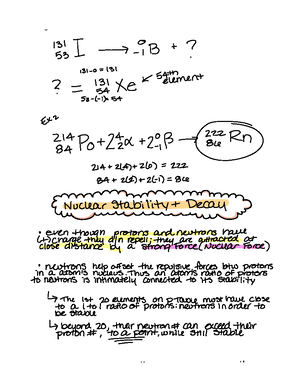 131
53 I → 0
-1 B + ?
131-0 = 131
? = 131
54 Xe ← 54th element
53-(-1) = 54
Ex 2
214
84 Po + 2 4
2 α + 2 0
-1 B → 222
86 Rn
214 + 2(4) + 2(0) = 222
84 + 2(2) + 2(-1) = 86
Nuclear Stability + Decay
• even though protons and neutrons have
(+) charge they d/n repell; they are attracted at
close distance by a strong force (Nuclear Force)
• neutrons help offset the repulsive forces btw protons
in a atoms nucleus. Thus an atoms ratio of protons
to neutrons is intimately connected to its stability
↳ The 1st 20 elements on p-table must have close
to a 1 to 1 ratio of protons: neutrons in order to
be stable
↳ beyond 20, their neutron # can exceed their
proton #, to a point, while still stable